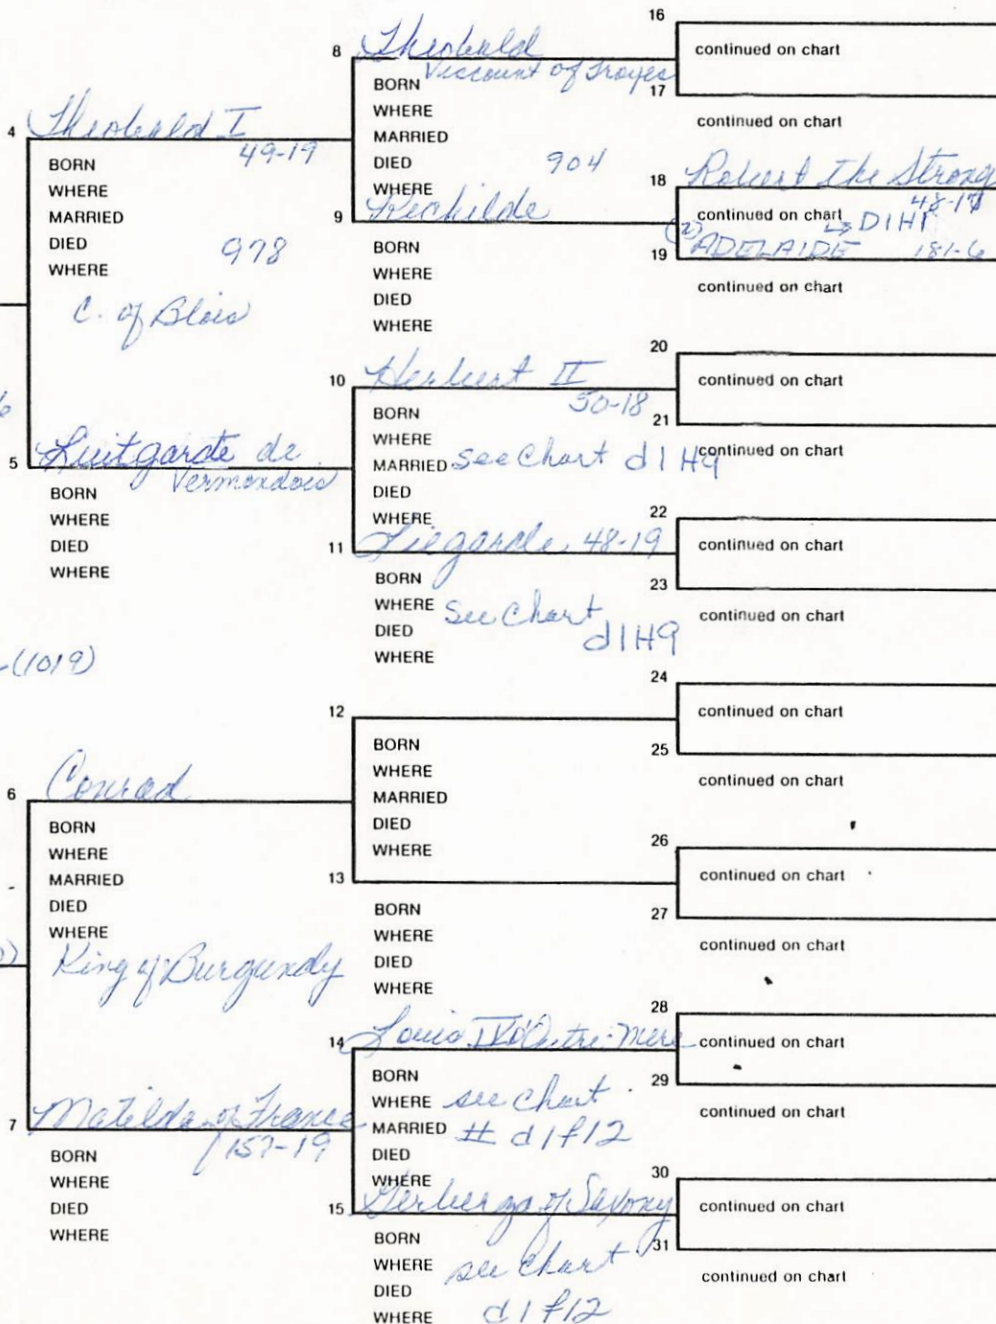 4
Theobald I
49-19
BORN
WHERE
MARRIED
DIED 978
WHERE
C. of Blois
6
5
Luitgarde de
Vermandois
BORN
WHERE
DIED
WHERE
-(1019)
6
Conrad
BORN
WHERE
MARRIED
DIED
WHERE
King of Burgundy
7
Matilda of France
157-19
BORN
WHERE
DIED
WHERE
8
Theobald
Viscount of Troyes
BORN
WHERE
MARRIED
DIED 904
WHERE
9
Richilde
BORN
WHERE
DIED
WHERE
10
Herbert II
50-18
BORN
WHERE
MARRIED see Chart d1H9
DIED
WHERE
11
Liegarde, 48-19
BORN
WHERE see Chart
DIED d1H9
WHERE
12
BORN
WHERE
MARRIED
DIED
WHERE
13
BORN
WHERE
DIED
WHERE
14
Louis IV d'Outre-Mere
BORN
WHERE see chart
MARRIED # d1f12
DIED
WHERE
15
Gerberga of Saxony
BORN
WHERE see Chart
DIED
WHERE d1f12
16
continued on chart
17
continued on chart
18
Robert the Strong
48-17
continued on chart
↳ D1H1
(2)
19
ADELAIDE 181-6
continued on chart
20
continued on chart
21
continued on chart
22
continued on chart
23
continued on chart
24
continued on chart
25
continued on chart
26
continued on chart
27
continued on chart
28
continued on chart
29
continued on chart
30
continued on chart
31
continued on chart